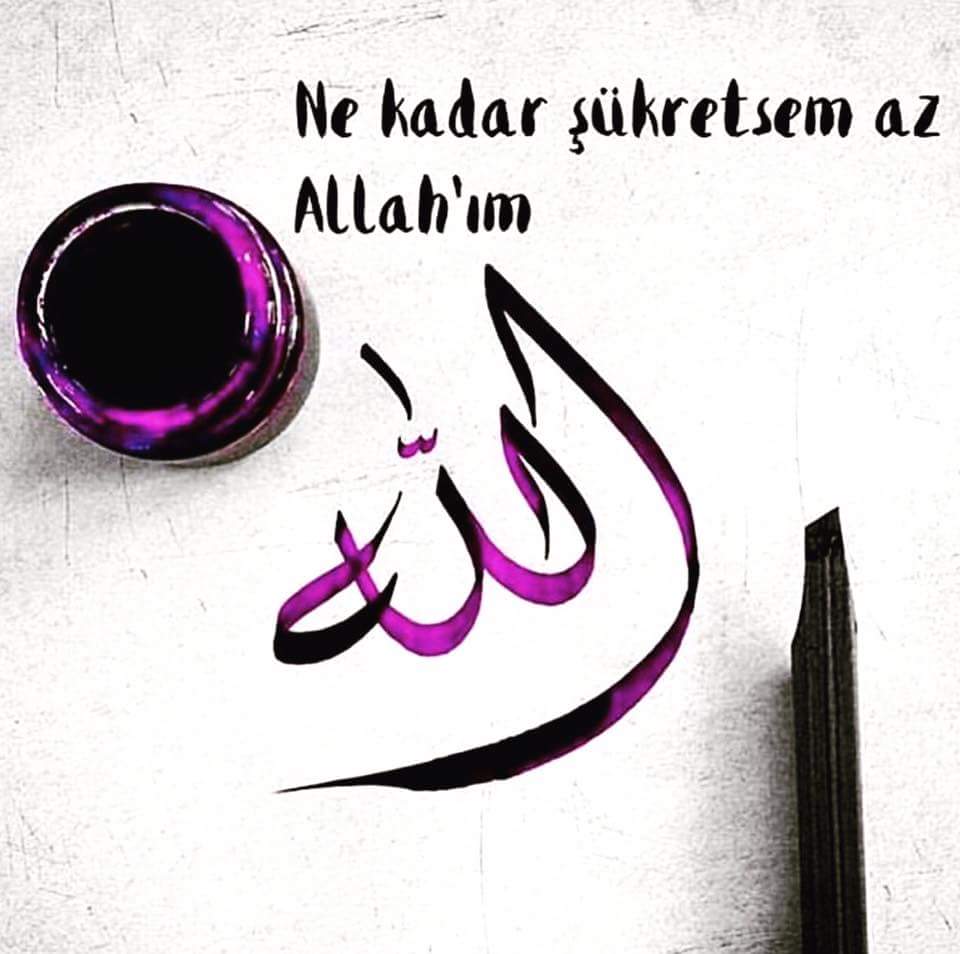 Ne kadar şükretsem az
Allah'ım
الله